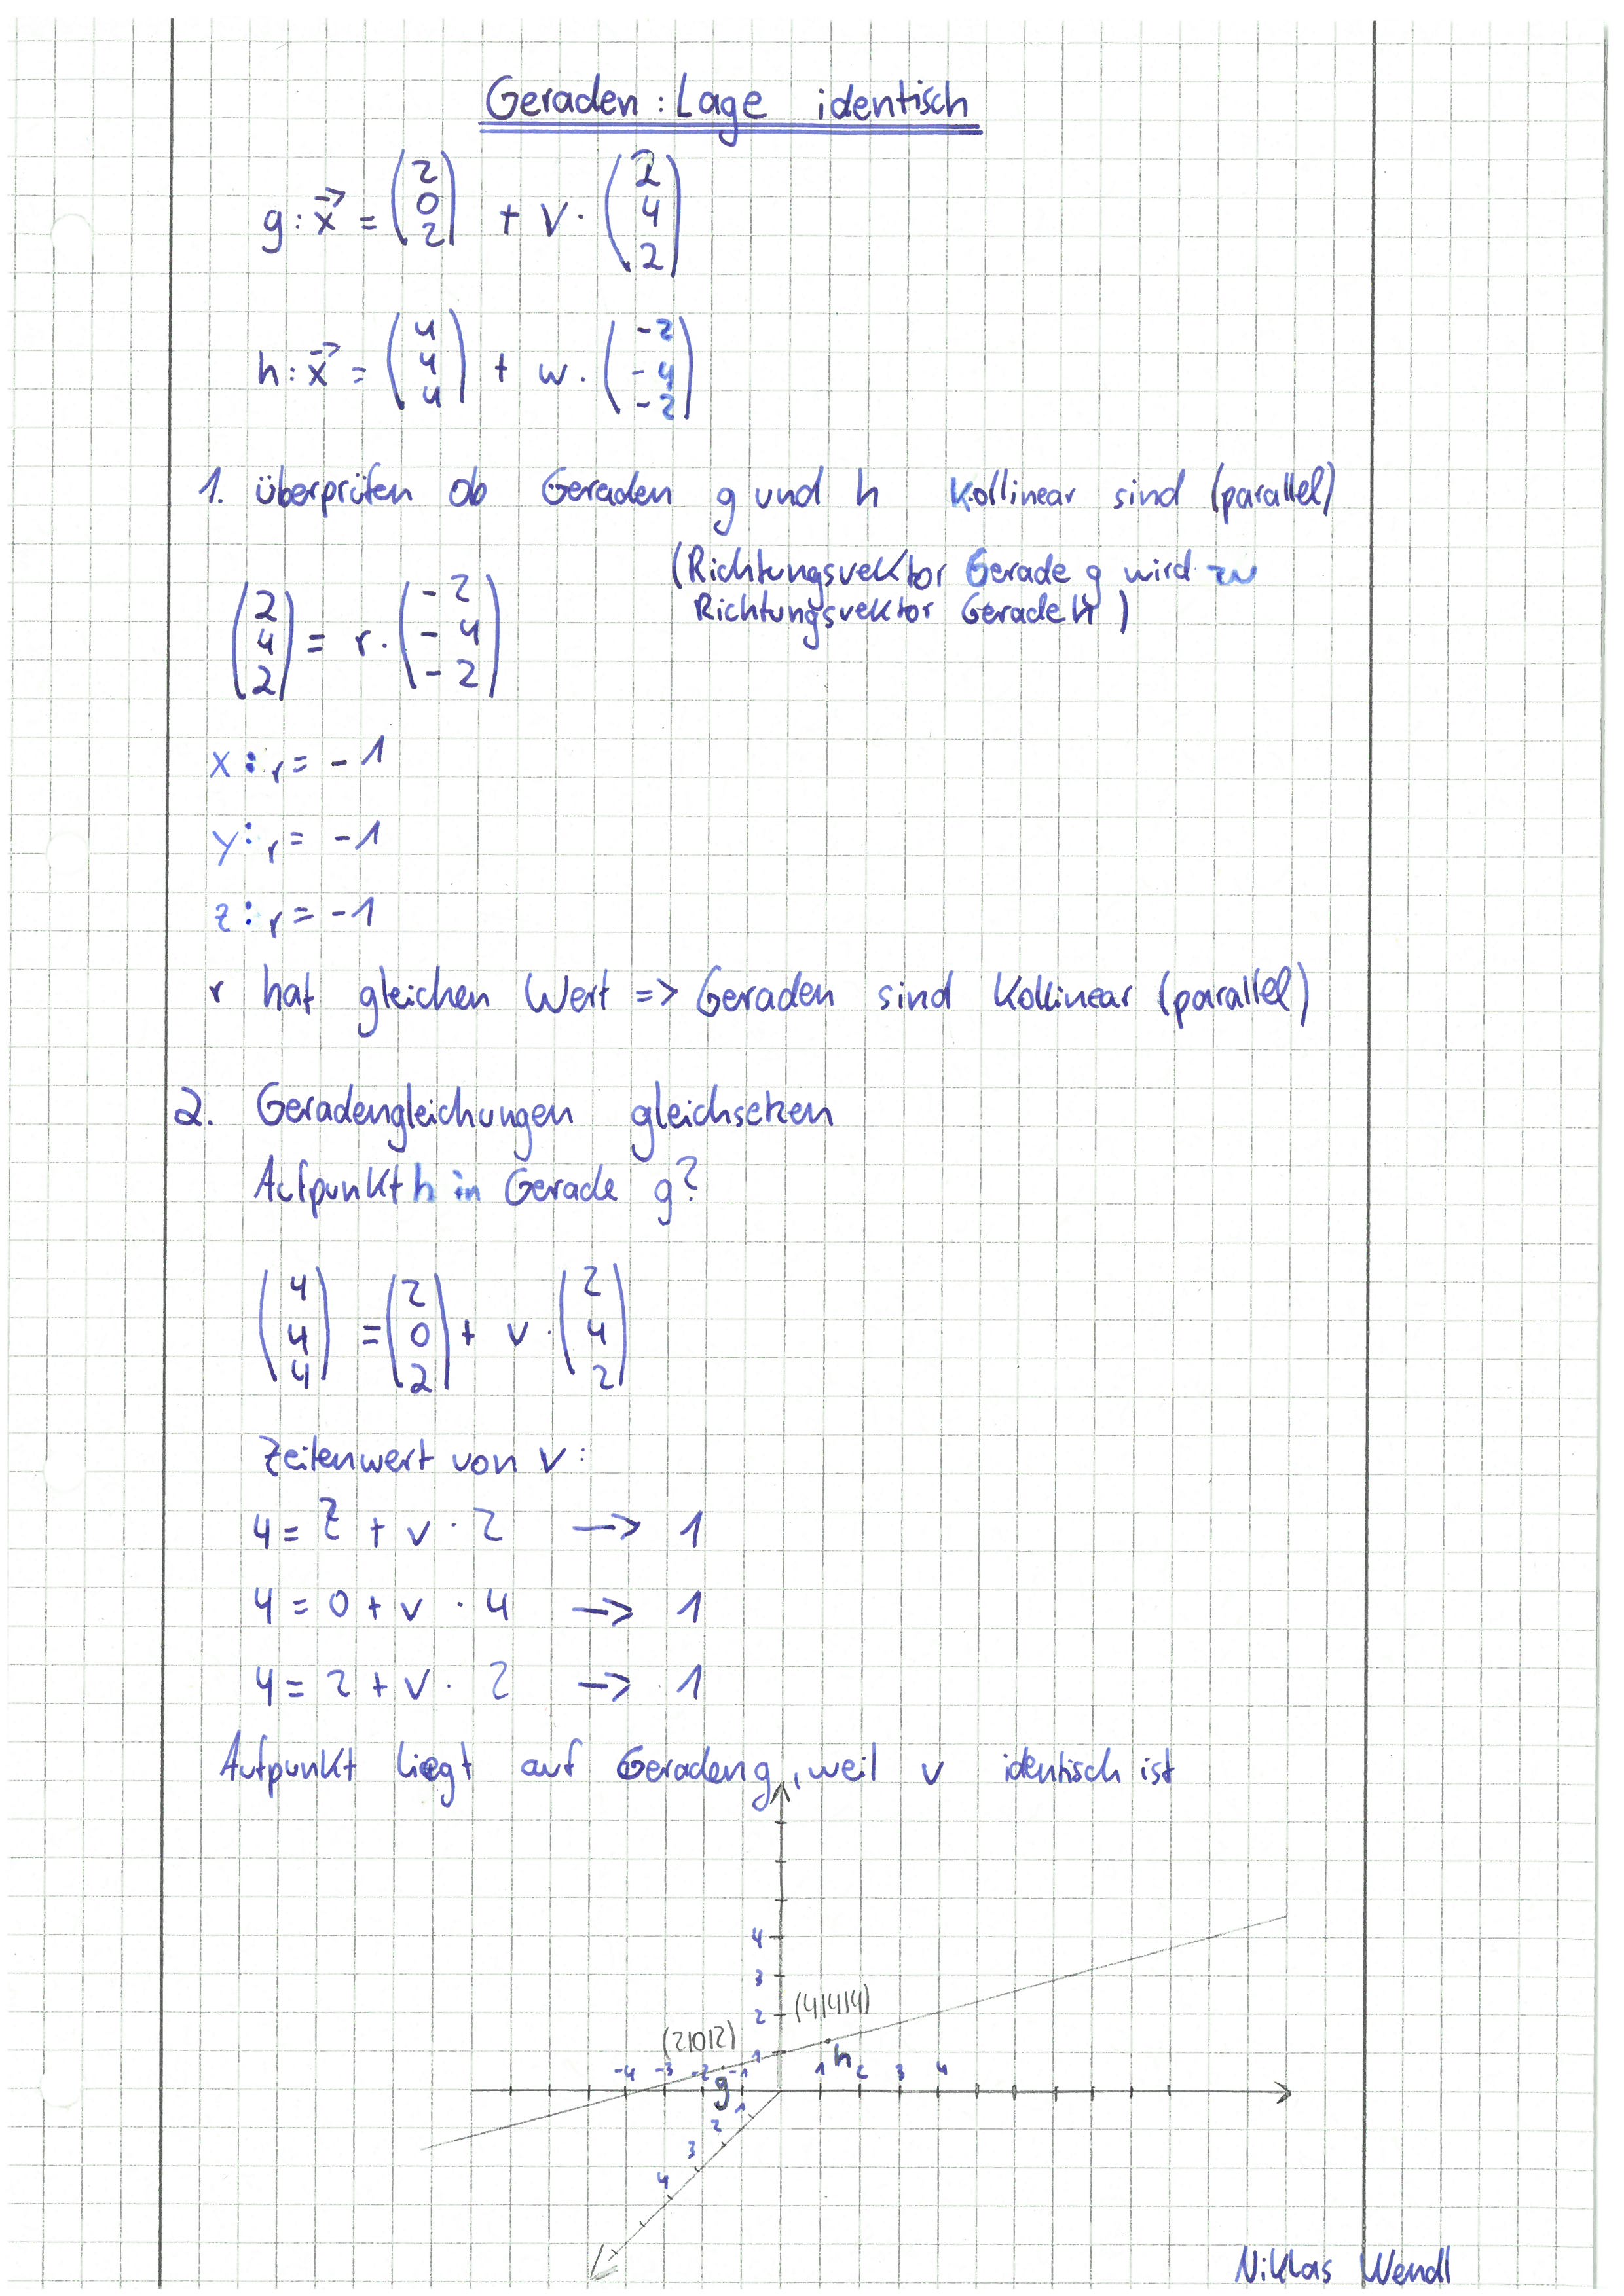 Geraden: Lage identisch
g: x⃗ = (2 0 2) + v · (2 4 2)
h: x⃗ = (4 4 4) + w · (-2 -4 -2)
1. überprüfen ob Geraden g und h kollinear sind (parallel)
(Richtungsvektor Gerade g wird zu
Richtungsvektor Gerade h)
(2 4 2) = r · (-2 -4 -2)
x: r = -1
y: r = -1
z: r = -1
r hat gleichen Wert => Geraden sind kollinear (parallel)
2. Geradengleichungen gleichsetzen
Aufpunkt h in Gerade g?
(4 4 4) = (2 0 2) + v · (2 4 2)
Zeilenwert von v:
4 = 2 + v · 2 -> 1
4 = 0 + v · 4 -> 1
4 = 2 + v · 2 -> 1
Aufpunkt liegt auf Geraden g, weil v identisch ist
4
3
2
1
(4|4|4)
(2|0|2)
-4 -3 -2 -1 1 2 3 4
h
g
1
2
3
4
Niklas Wendl